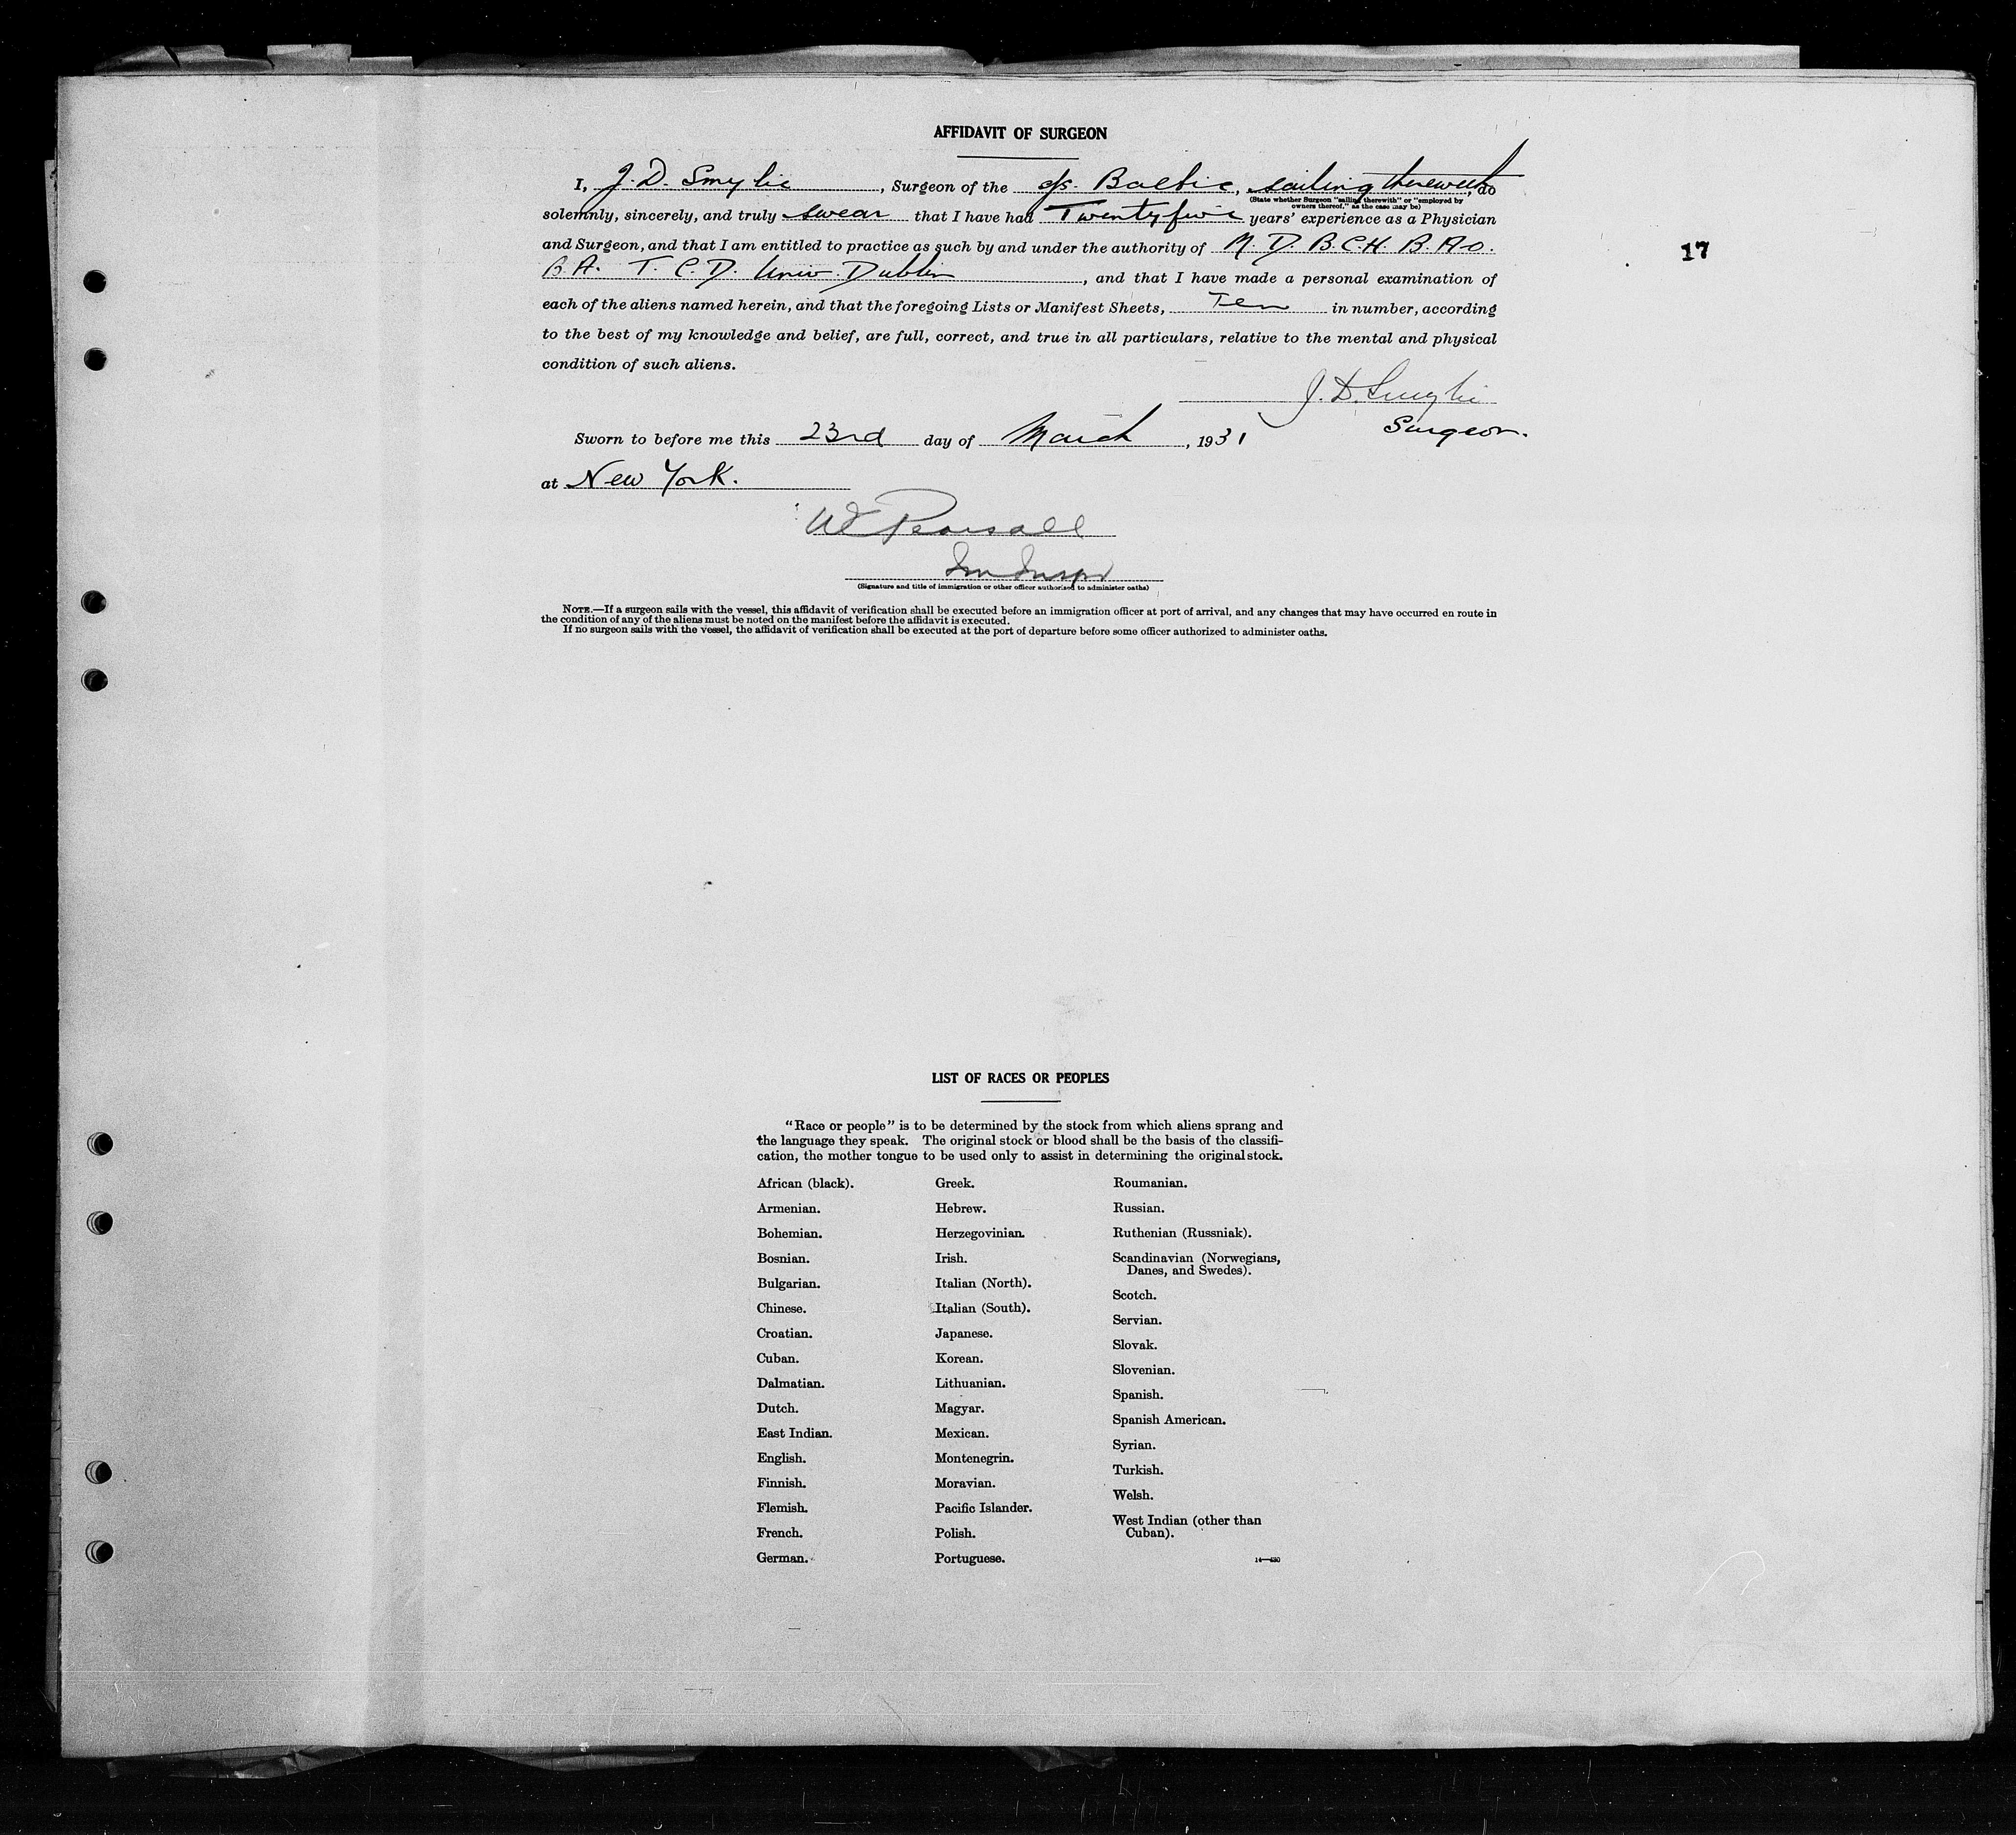 AFFIDAVIT OF SURGEON
I, J. D. Smylie, Surgeon of the s/s. Baltic, sailing therewith, do
(State whether Surgeon "sailing therewith" or "employed by
owners thereof," as the case may be)
solemnly, sincerely, and truly swear that I have had Twenty five years' experience as a Physician
and Surgeon, and that I am entitled to practice as such by and under the authority of M. D. B. C. H. B. A. O.
B. A. T. C. D. Univ. Dublin, and that I have made a personal examination of
17
each of the aliens named herein, and that the foregoing Lists or Manifest Sheets, Ten in number, according
to the best of my knowledge and belief, are full, correct, and true in all particulars, relative to the mental and physical
condition of such aliens.
J. D. Smylie
Surgeon.
Sworn to before me this 23rd day of March, 1931
at New York.
Pearsall
Im Inspr
(Signature and title of immigration or other officer authorized to administer oaths)
NOTE.—If a surgeon sails with the vessel, this affidavit of verification shall be executed before an immigration officer at port of arrival, and any changes that may have occurred en route in
the condition of any of the aliens must be noted on the manifest before the affidavit is executed.
If no surgeon sails with the vessel, the affidavit of verification shall be executed at the port of departure before some officer authorized to administer oaths.
LIST OF RACES OR PEOPLES
"Race or people" is to be determined by the stock from which aliens sprang and
the language they speak. The original stock or blood shall be the basis of the classifi-
cation, the mother tongue to be used only to assist in determining the original stock.
African (black).
Armenian.
Bohemian.
Bosnian.
Bulgarian.
Chinese.
Croatian.
Cuban.
Dalmatian.
Dutch.
East Indian.
English.
Finnish.
Flemish.
French.
German.
Greek.
Hebrew.
Herzegovinian.
Irish.
Italian (North).
Italian (South).
Japanese.
Korean.
Lithuanian.
Magyar.
Mexican.
Montenegrin.
Moravian.
Pacific Islander.
Polish.
Portuguese.
Roumanian.
Russian.
Ruthenian (Russniak).
Scandinavian (Norwegians,
Danes, and Swedes).
Scotch.
Servian.
Slovak.
Slovenian.
Spanish.
Spanish American.
Syrian.
Turkish.
Welsh.
West Indian (other than
Cuban).